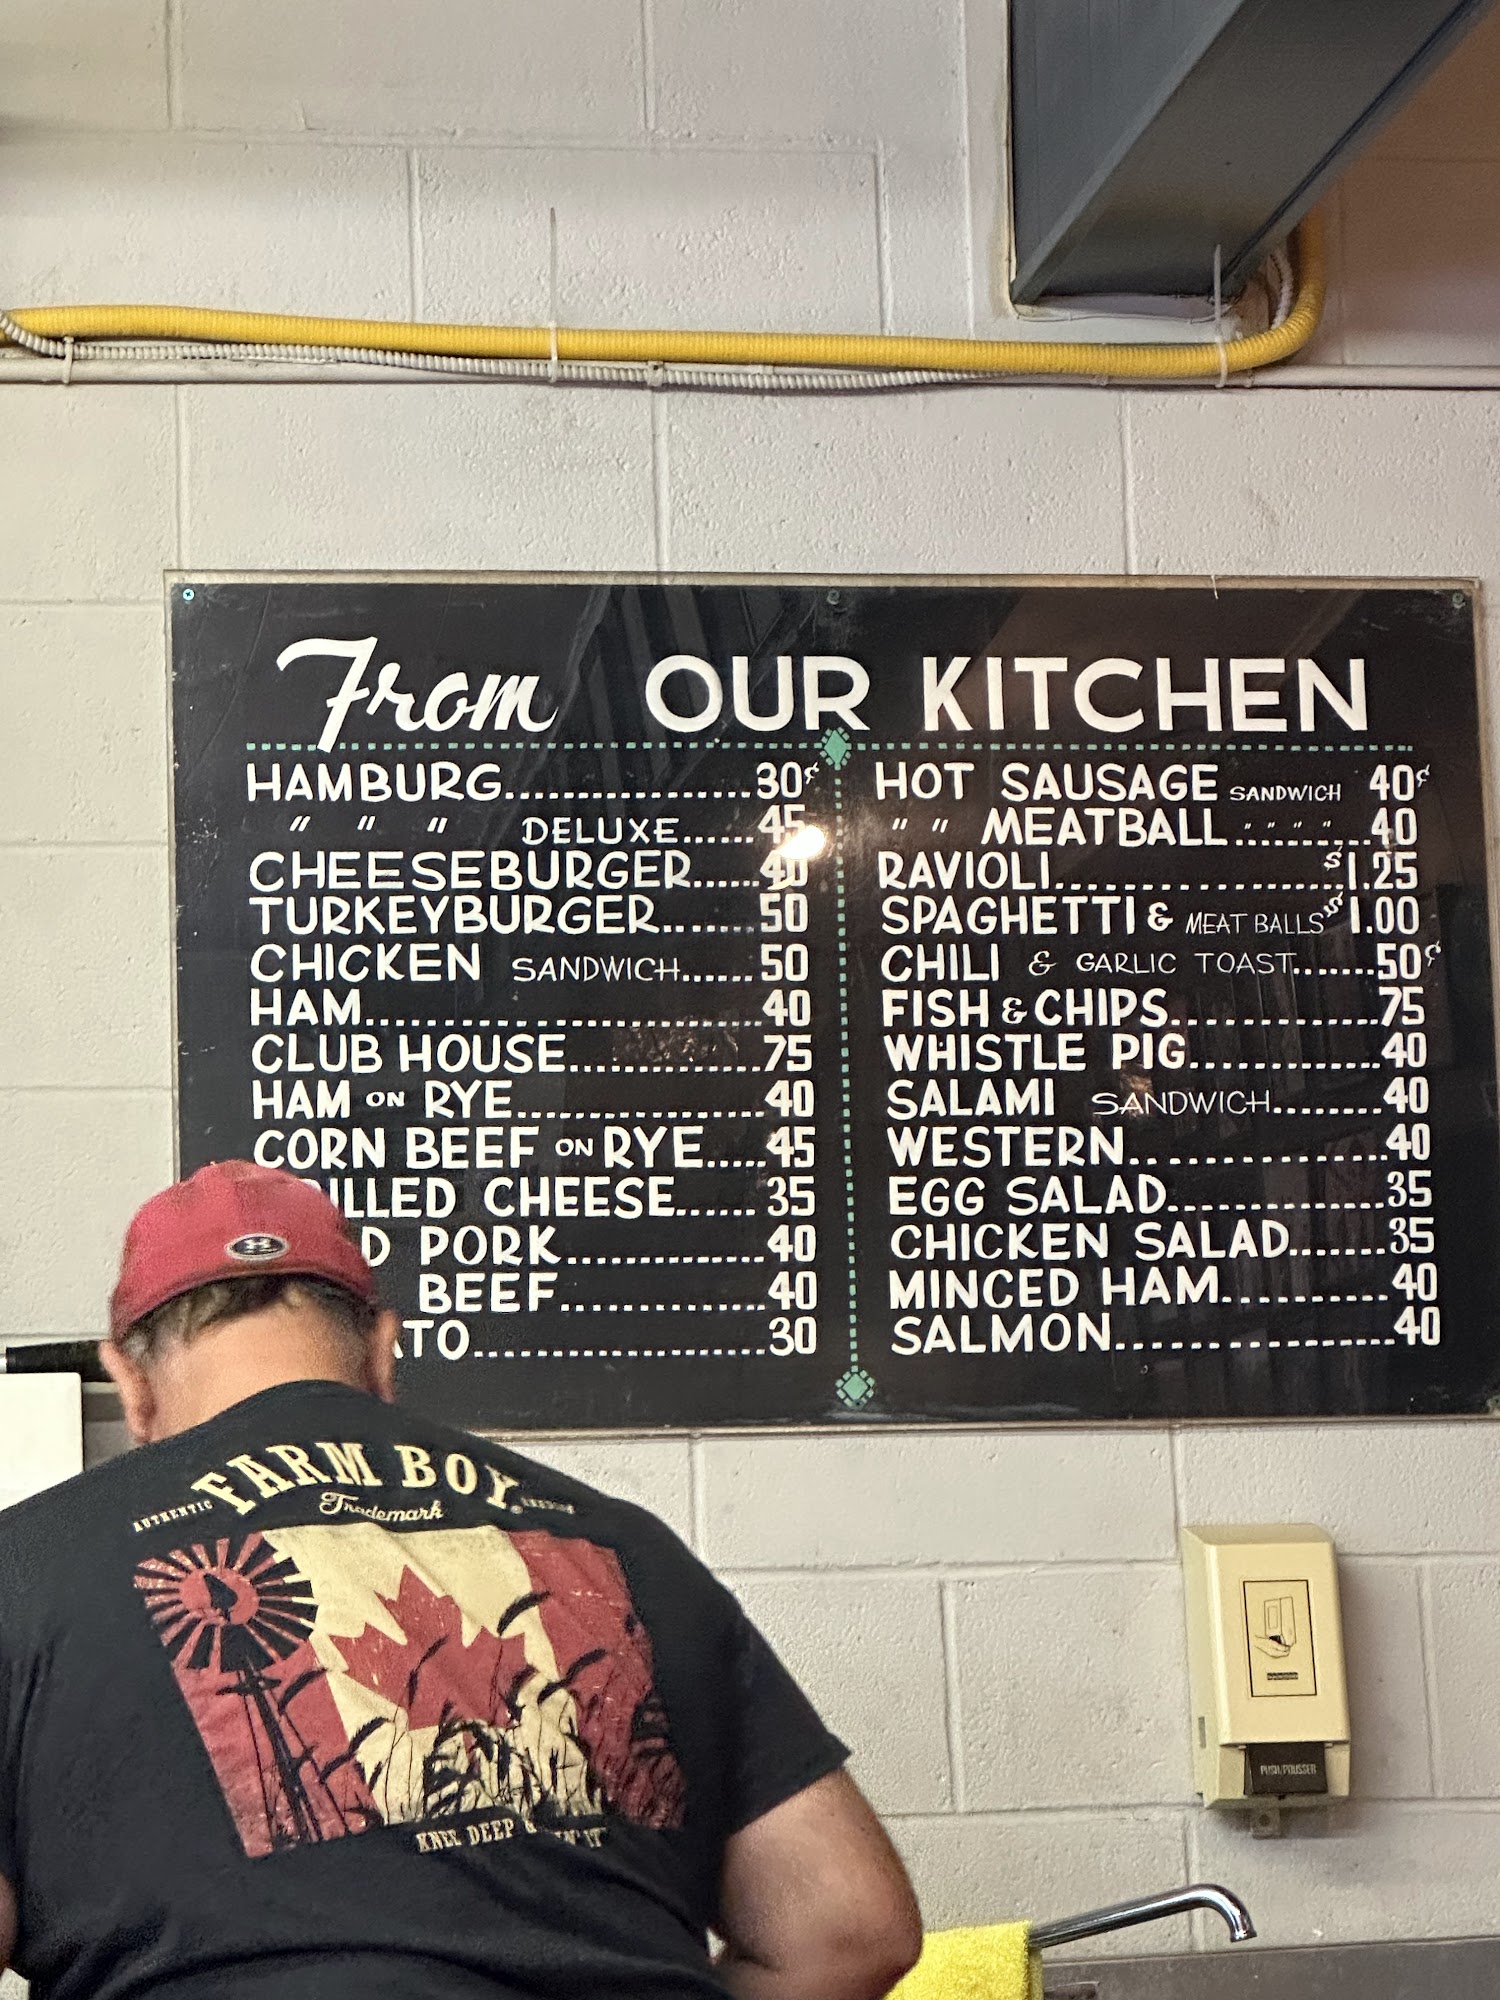 From OUR KITCHEN
HAMBURG..................30¢
" " " DELUXE......45
CHEESEBURGER.....40
TURKEYBURGER.......50
CHICKEN SANDWICH......50
HAM.............................40
CLUB HOUSE..............75
HAM ON RYE..................40
CORN BEEF ON RYE.....45
ILLED CHEESE......35
D PORK...............40
BEEF...............40
ATO.....................30
HOT SAUSAGE SANDWICH 40¢
" " MEATBALL " " " " 40
RAVIOLI.....................$1.25
SPAGHETTI & MEAT BALLS $1.00
CHILI & GARLIC TOAST.......50¢
FISH & CHIPS...............75
WHISTLE PIG..............40
SALAMI SANDWICH........40
WESTERN...................40
EGG SALAD...............35
CHICKEN SALAD.......35
MINCED HAM............40
SALMON....................40
AUTHENTIC FARM BOY
Trademark
KNEE DEEP
PUSH/POUSSER